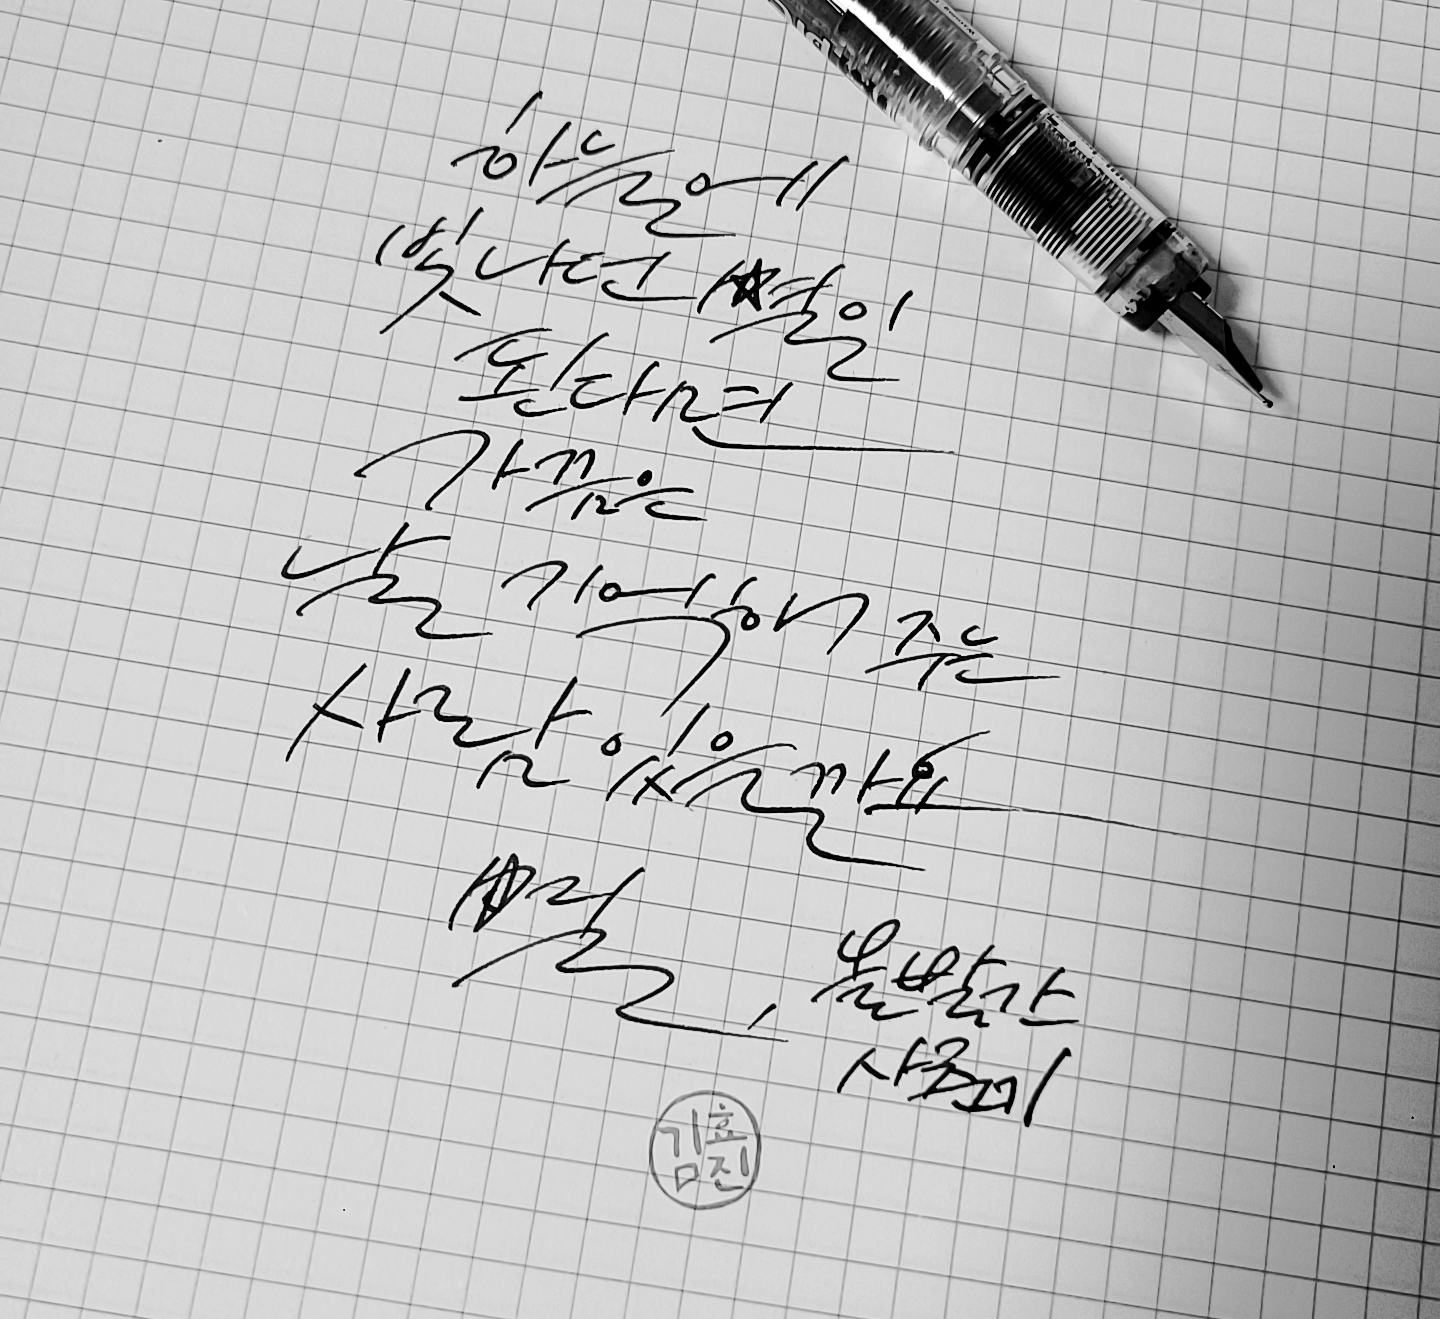 하늘에
빛나던 별일
된다면
가끔은
날 기억해 주는
사람 있을까요
별, 볼빨간
사춘기
김효진